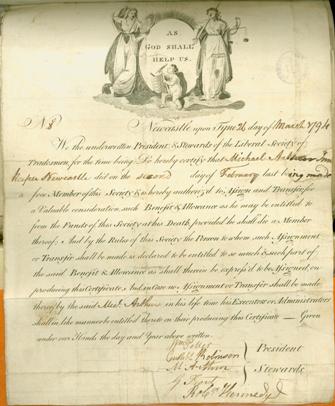 AS
GOD SHALL
HELP US.
No 8 Newcastle upon Tyne 26 day of March 1794
We the underwritten President & Stewards of the Liberal Society of
Tradesmen, for the time being Do hereby certify that Michael Arthur Inn
keeper Newcastle did on the second day of February last being made
free Member of this Society & is hereby authoriz'd to Assign and Transfer for
a Valuable consideration, such Benefit & Allowance as he may be entitled to
from the Funds of this Society at his Death, provided he shall die a Member
thereof; And by the Rules of this Society the Person to whom such Assignment
or Transfer shall be made is declared to be entitled to so much & such part of
the said Benefit & Allowance as shall therein be express'd to be Assigned, on
producing this Certificate, but unless no Assignment or Transfer shall be made
thereof by the said Michl Arthur in his life time his Executors or Administrators
shall in like manner be entitled thereto on their producing this Certificate — Given
under our Hands the day and Year above written.
Robinson
President
M Arthur
Stewards
Robt Kennedy